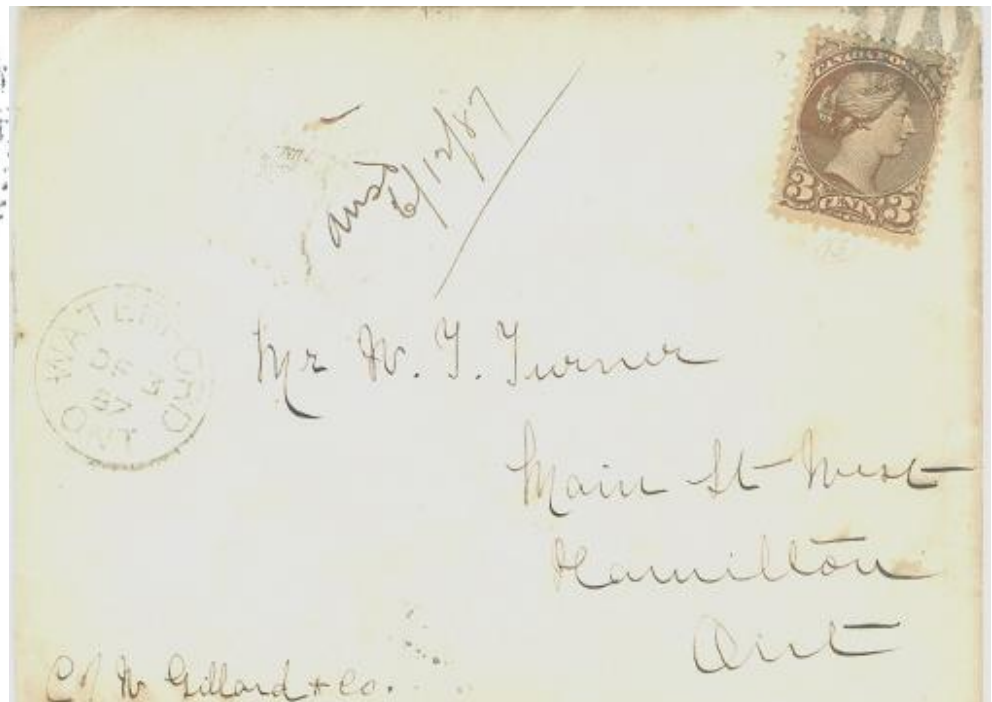 CANADA POSTAGE
3 CENTS 3
ansd
6/12/87
WATERFORD
DE 5
87
ONT
Mr W. J. Turner
Main St West
Hamilton
Ont
C/ W Gillard & Co.